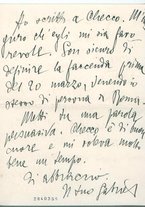 Ho scritto a Checco. Mi au-
guro ch'egli mi sia favo-
revole. Son sicuro di
definire la faccenda prima
del 20 marzo, venendo io
stesso di persona a Roma.
Metti tu una parola
persuasiva. Checco è di buon
cuore e mi voleva molto
bene un tempo.
Ti abbraccio.
Il tuo Gabriel